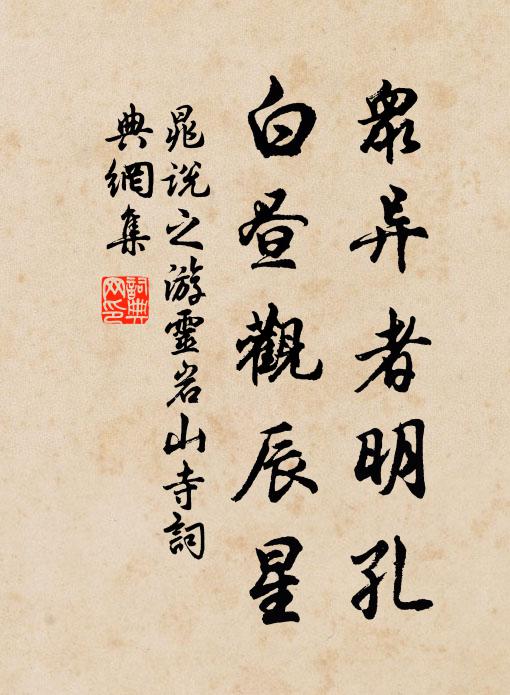 眾异者明孔
白昼觀辰星
晁说之游靈岩山寺詞
典網集
詞典
网印